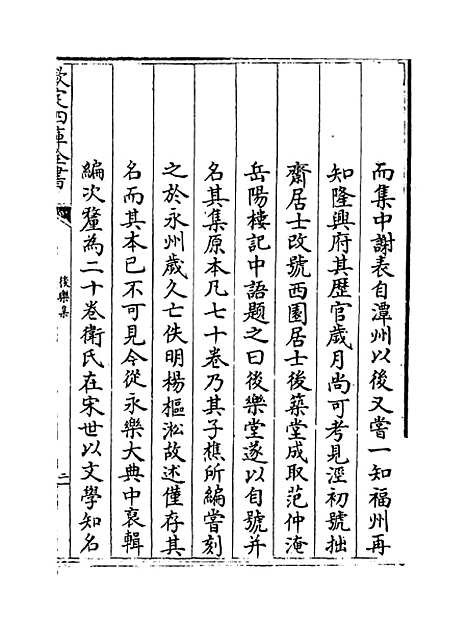 而集中謝表自潭州以後又嘗一知福州再
知隆興府其歴官歲月尚可考見涇初號拙
齋居士改號西園居士後築堂成取范仲淹
岳陽樓記中語題之曰後樂堂遂以自號并
名其集原本凡七十卷乃其子樵所編嘗刻
之於永州歲久亡佚明楊樞淞故述僅存其
名而其本已不可見今從永樂大典中裒輯
編次釐為二十卷衛氏在宋世以文學知名
欽定四庫全書
後樂集
二